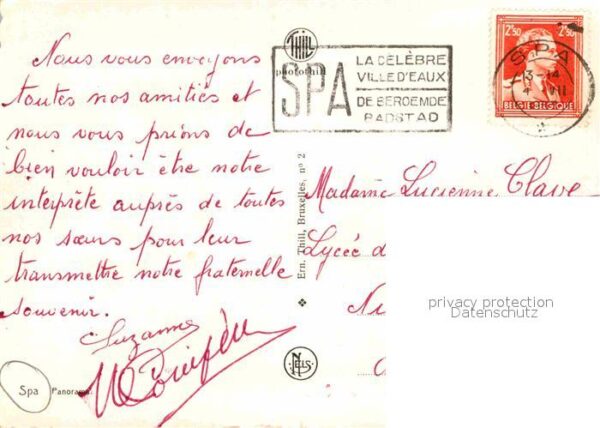 Nous vous envoyons
toutes nos amitiés et
nous vous prions de
bien vouloir être notre
interprète auprès de toutes
nos sœurs pour leur
transmettre notre fraternelle
souvenir.
Suzanne
Spa Panorama.
THILL
photothill
SPA
LA CÉLÈBRE
VILLE D'EAUX
DE BEROEMDE
BADSTAD
2F50 2F50
SPA
13-14
VII
BELGIE-BELGIQUE
Ern. Thill, Bruxelles, nº 2
NELS
Madame Lucienne Clave
Lycée d
privacy protection
Datenschutz